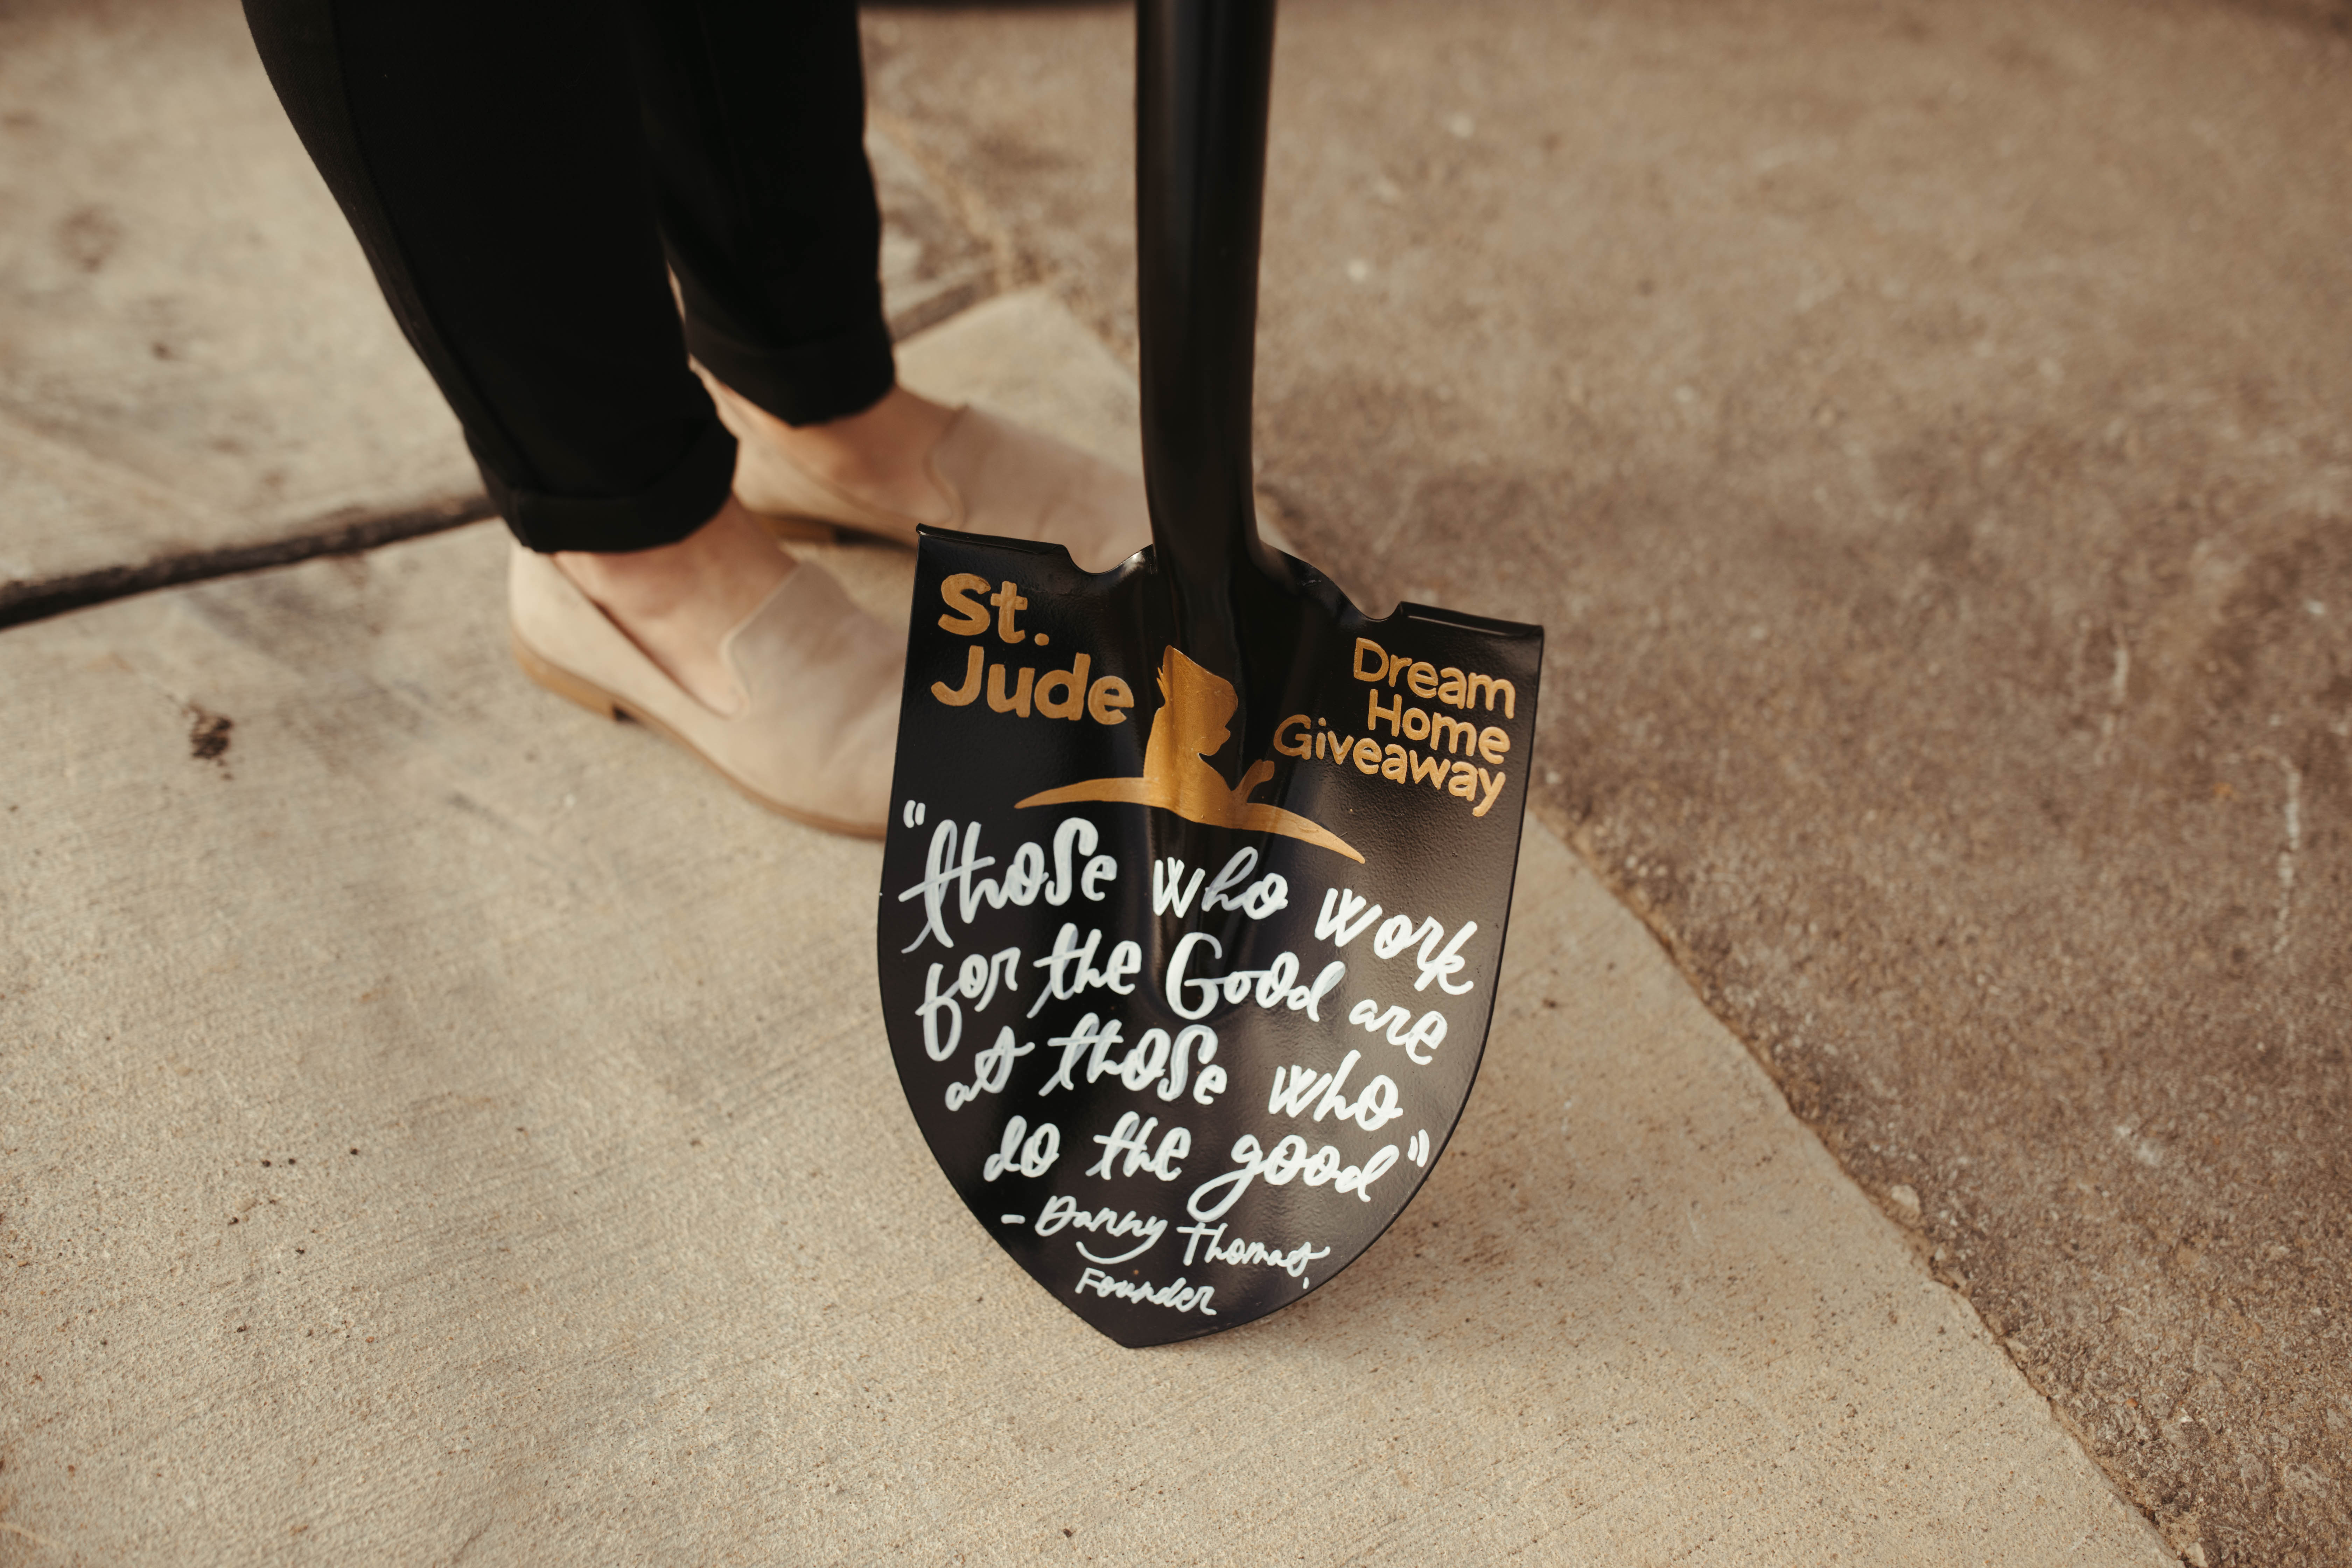 St.
Jude
Dream
Home
Giveaway
"those who work
for the Good are
at those who
do the good"
- Danny Thomas,
Founder